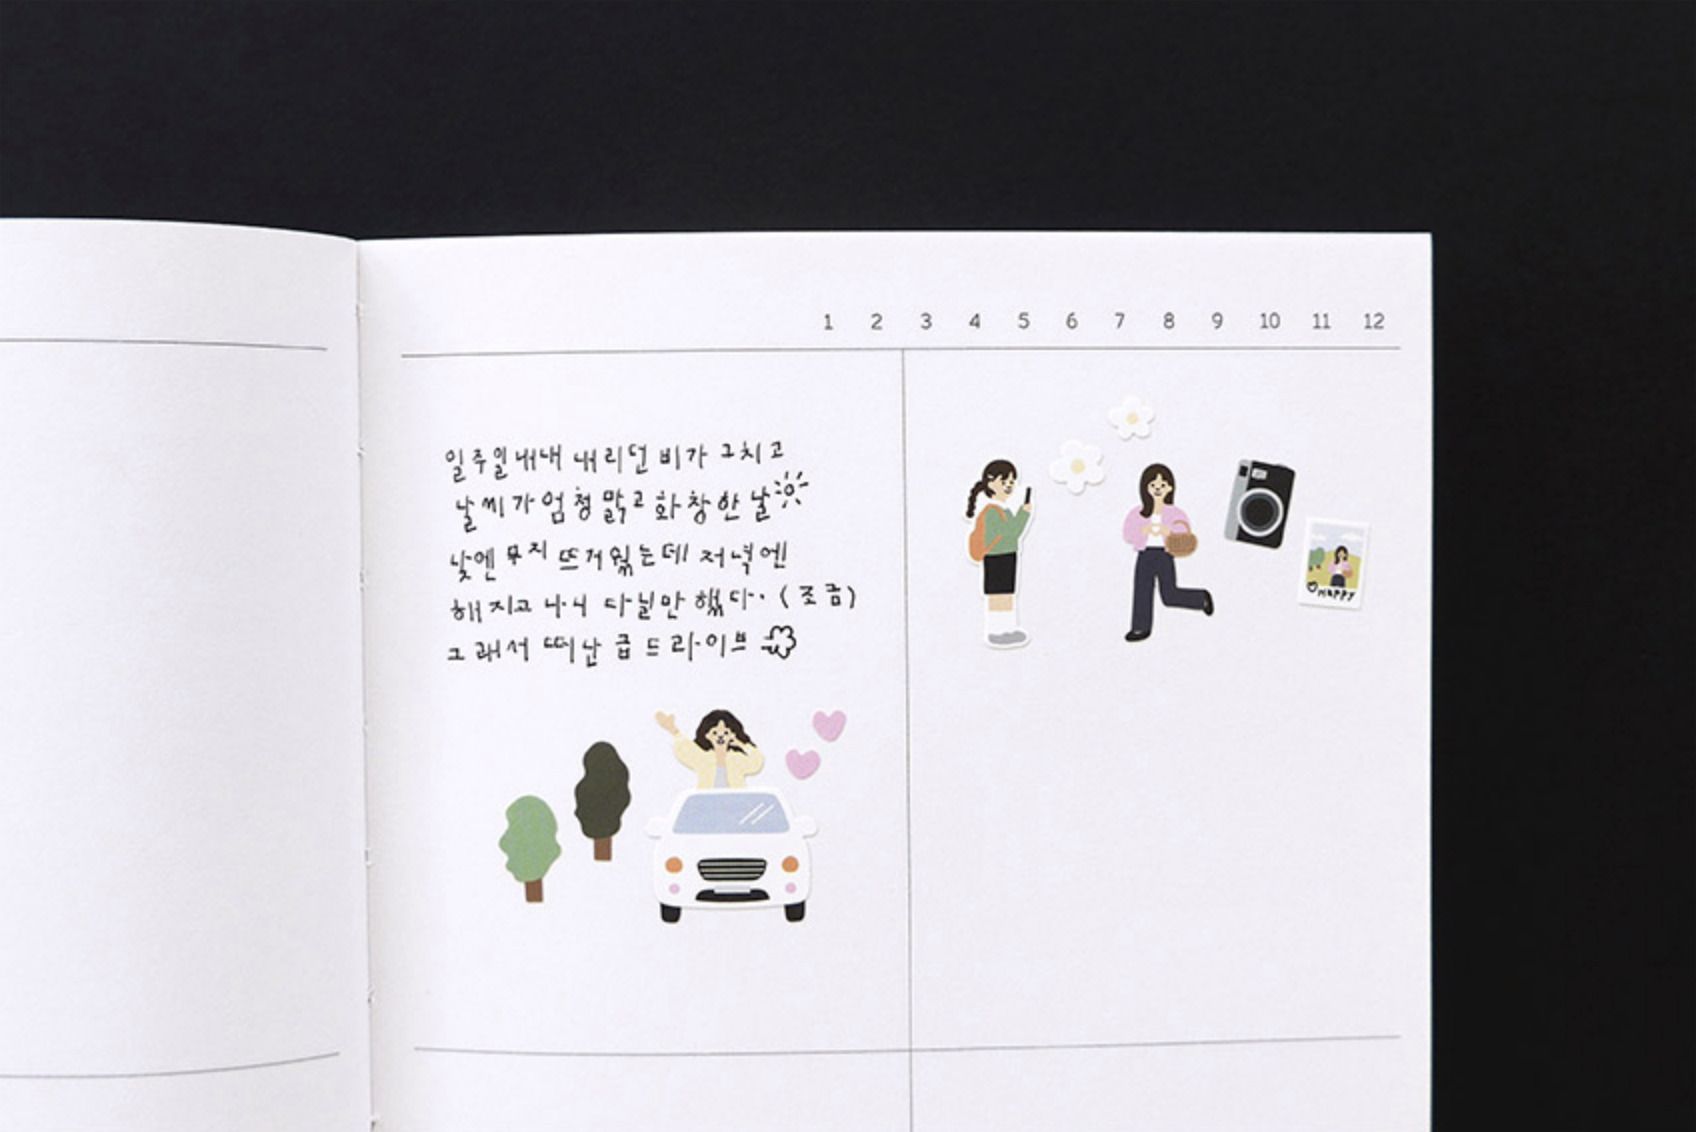 1 2 3 4 5 6 7 8 9 10 11 12
일주일내내 내리던 비가 그치고
날씨가 엄청 맑고 화창한 날
낮엔 무지 뜨거웠는데 저녁엔
해지고 나니 다닐만 했다.. (조금)
그래서 떠난 급 드라이브
HAPPY